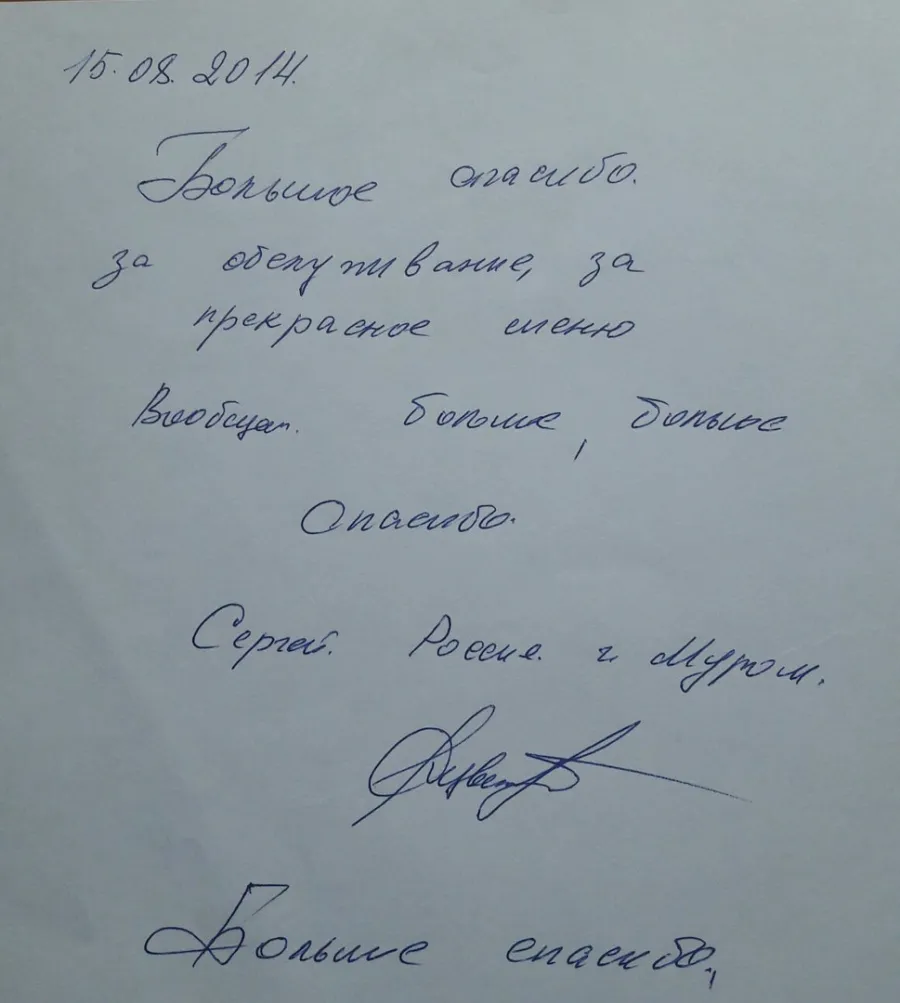 15.08.2014.
Большое спасибо.
за обслуживание, за
прекрасное меню
Вообщем. большое, большое
Спасибо.
Сергей. Россия. г. Муром.
Большое спасибо.,